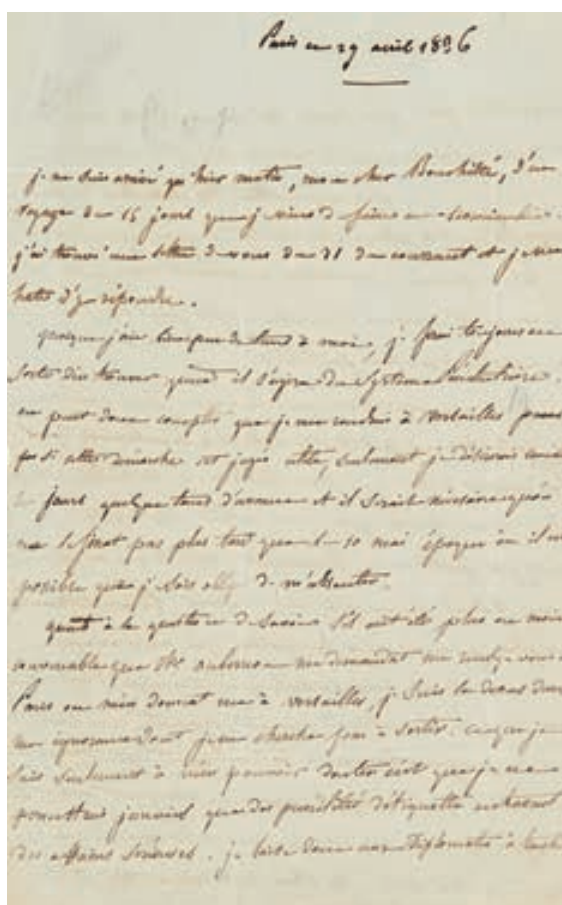 Paris ce 29 avril 1836
je ne suis arrivé qu'hier matin, mon cher Bouchitté, d'un
voyage de 15 jours que je viens de faire en
j'ai trouvé une lettre de vous du 21 du courant et je me
hate d'y répondre.
quoique j'aie bien peu de tems à moi, je ferai toujours en
sorte d'en trouver quand il s'agira du système
on peut donc compter que je me rendrai à versailles
si cette démarche est jugée utile, seulement je désirerais
jours quelque tems d'avance et il serait nécessaire qu'on
ne le fixat pas plus tot que le 10 mai époque où il
possible que je sois obligé de m'absenter.
quant à la question de savoir s'il eut été plus ou moins
convenable que Mr me demandat un rendez-vous à
Paris ou m'en donnat un à versailles, je suis la dessus dans
une ignorance dont je ne cherche pas à sortir. ce que je
sais seulement à n'en pouvoir douter c'est que je ne
permettrai jamais que des puérilités d'étiquette entravent
des affaires sérieuses. je laisse donc nos diplomates à